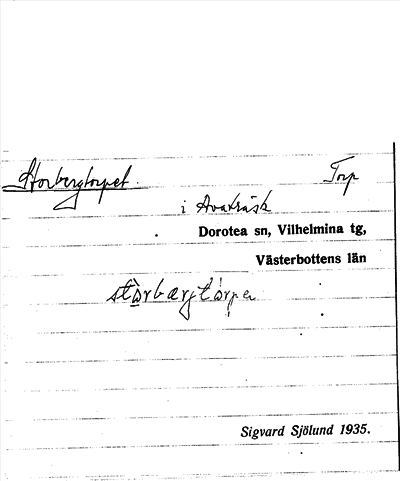 Storbergtorpet. Torp
i Avaträsk
Dorotea sn, Vilhelmina tg,
Västerbottens län
Sigvard Sjölund 1935.